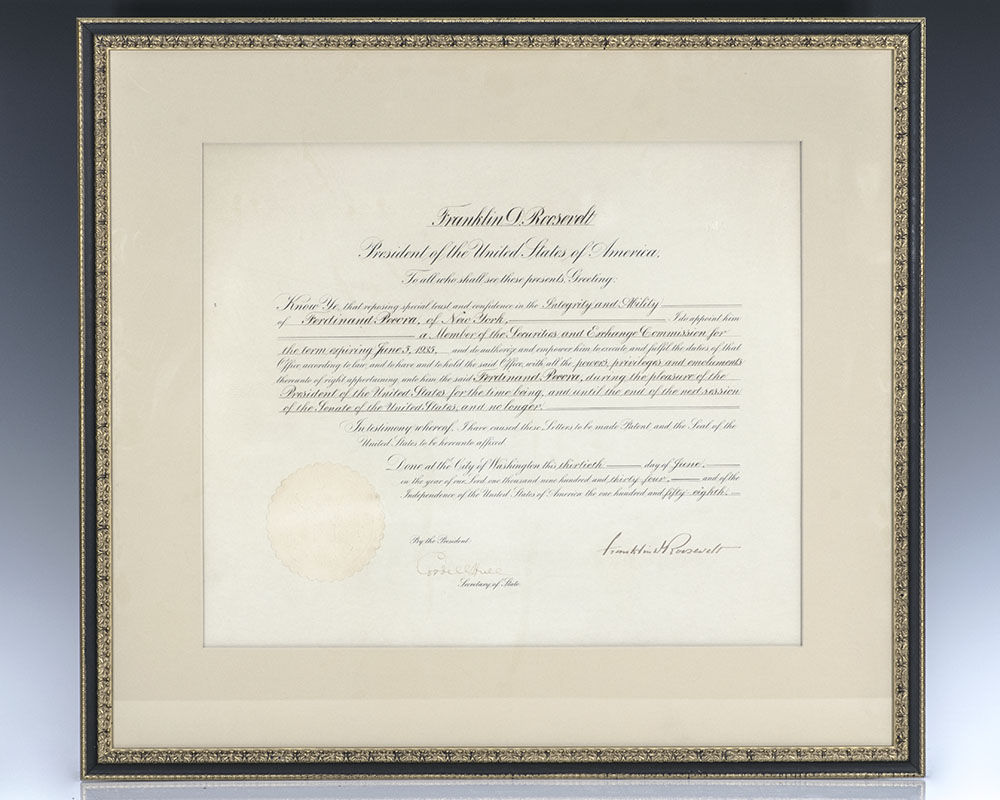 Franklin D. Roosevelt
President of the United States of America.
To all who shall see these presents, Greeting:
Know Ye, that reposing special trust and confidence in the Integrity and Ability
of Ferdinand Pecora, of New York, I do appoint him
a Member of the Securities and Exchange Commission for
the term expiring June 3, 1935, and do authorize and empower him to execute and fulfil the duties of that
Office according to law, and to have and to hold the said Office, with all the powers, privileges and emoluments
thereunto of right appertaining unto him the said Ferdinand Pecora, during the pleasure of the
President of the United States for the time being, and until the end of the next session
of the Senate of the United States, and no longer.
In testimony whereof, I have caused these Letters to be made Patent and the Seal of the
United States to be hereunto affixed
Done at the City of Washington this thirtieth day of June,
in the year of our Lord one thousand nine hundred and thirty four, and of the
Independence of the United States of America the one hundred and fifty eighth.
By the President:
Franklin D Roosevelt
Cordell Hull
Secretary of State.